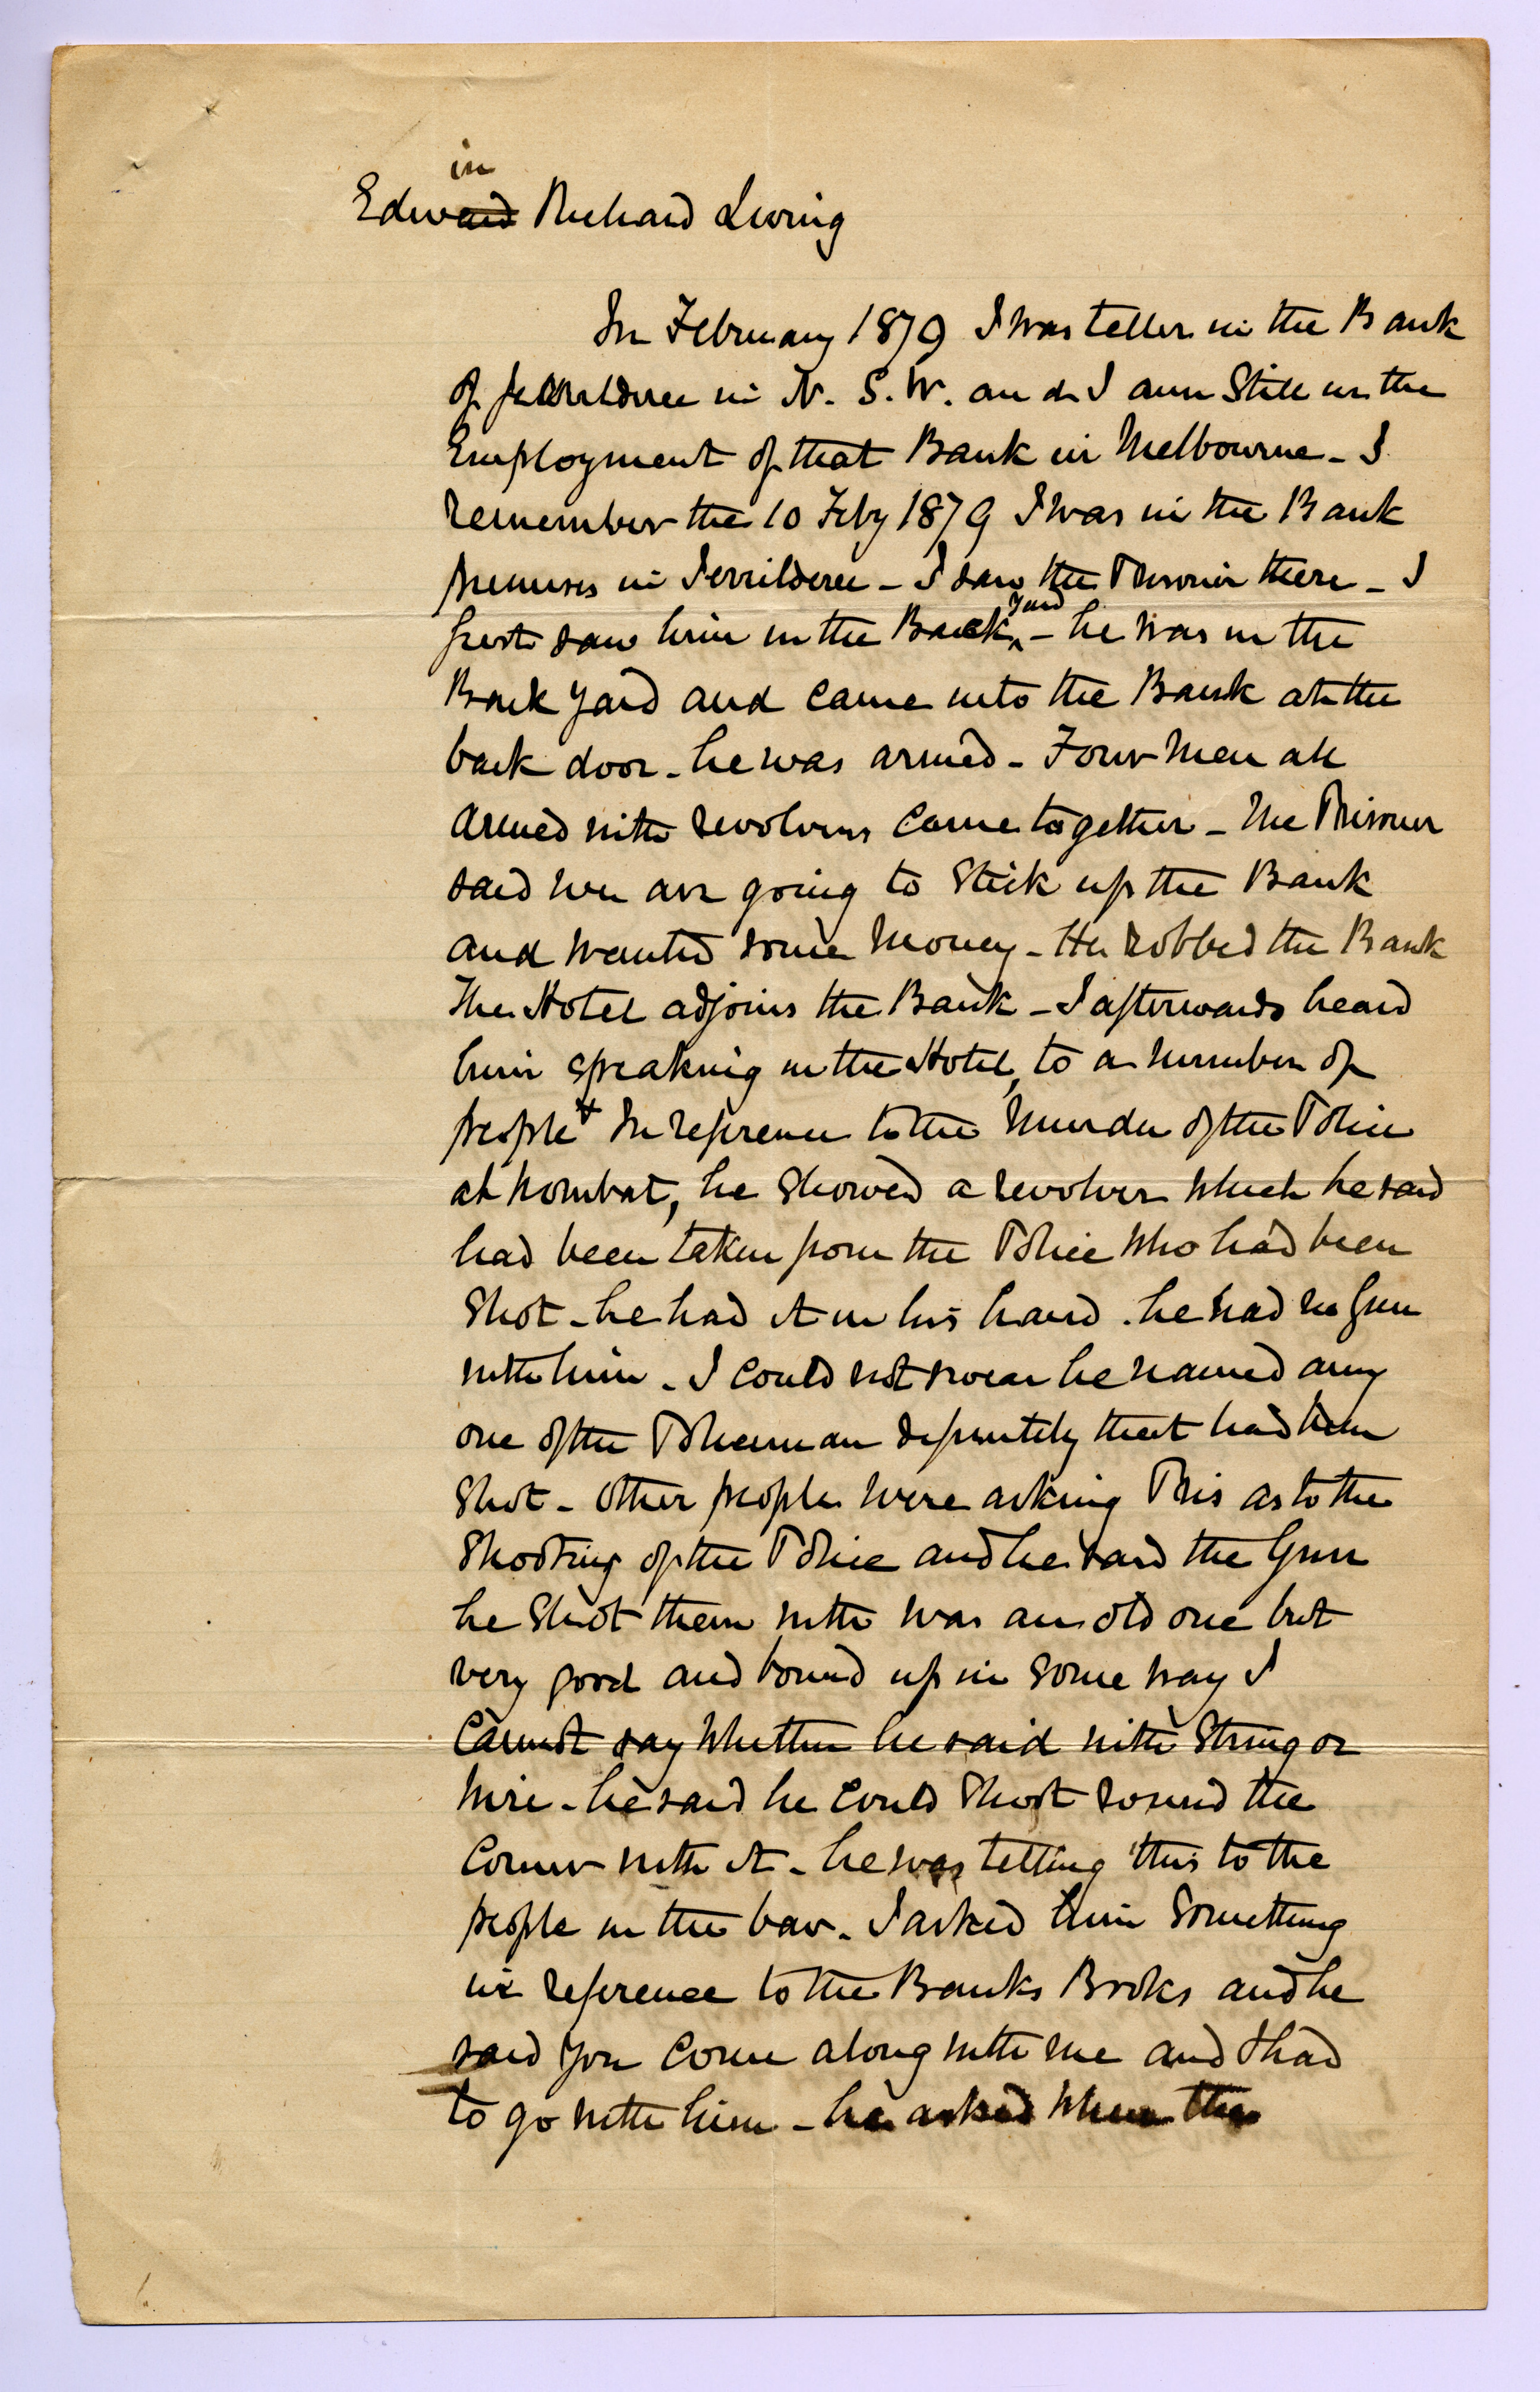 in
Edward Richard Living
In February 1879 I was teller in the Bank
of Jerrilderee in N. S. W. and I am still in the
Employment of that Bank in Melbourne - I
remember the 10 Feby 1879 I was in the Bank
premises in Jerrilderee - I saw the Prisoner there - I
yard
first saw him in the Back ^ - he was in the
Back yard and came into the Bank at the
back door - he was armed - Four men all
armed with revolvers came together - The Prisoner
said we are going to Stick up the Bank
and wanted some money - He robbed the Bank
The Hotel adjoins the Bank - I afterwards heard
him speaking in the Hotel, to a number of
people + In reference to the Murder of the Police
at Wombat, he showed a revolver which he said
had been taken from the Police who had been
Shot - he had it in his hand . he had no Gun
with him - I could not swear he named any
one of the Policeman definitely that had been
Shot - other people were asking Pris as to the
Shooting of the Police and he said the Gun
he Shot them with was an old one but
very good and bound up in some way I
Cannot say whether he said with String or
wire - he said he could Shoot round the
Corner with it - he was telling this to the
people in the bar - I asked him something
in reference to the Banks Books and he
said you come along with me and I had
to go with him - he asked where the